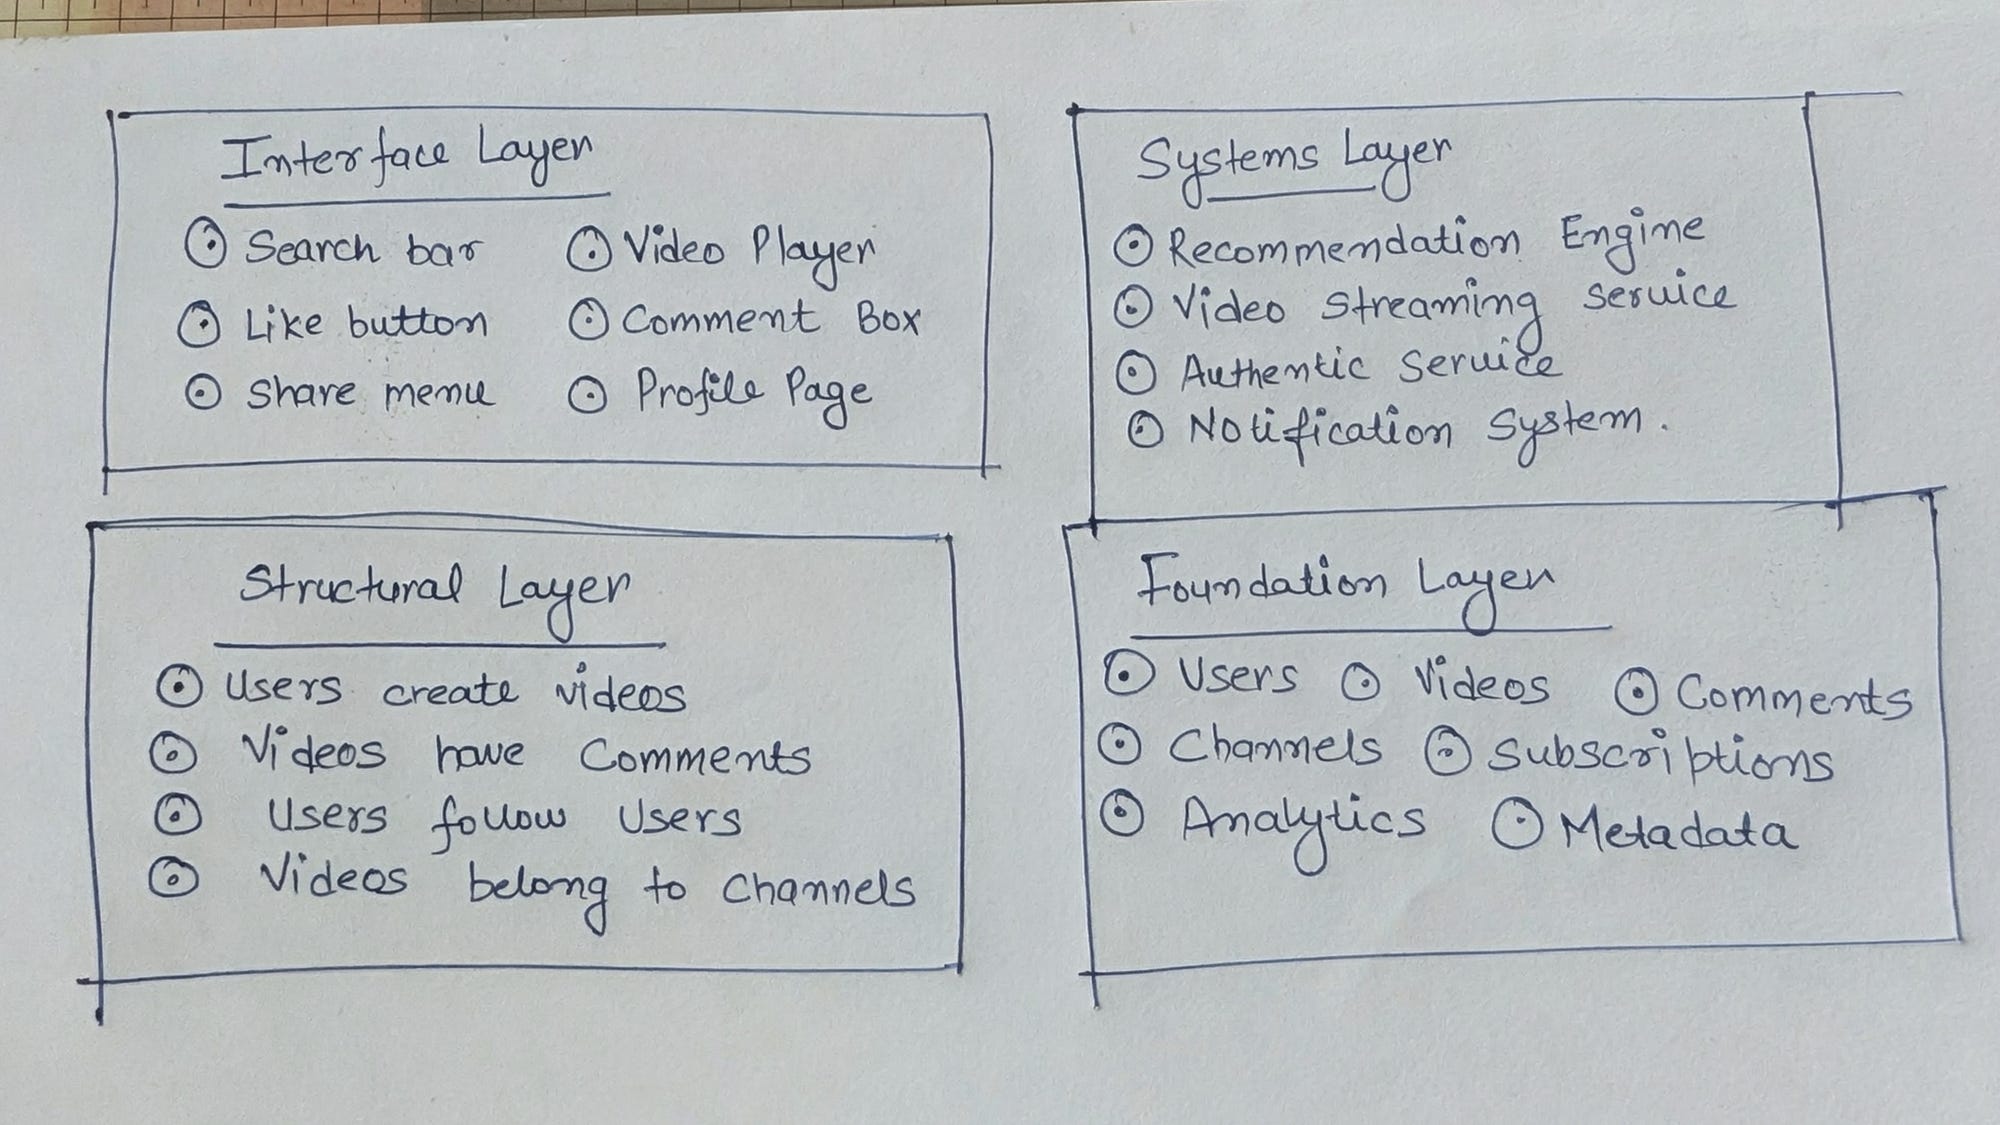 Interface Layer
Search bar
Video Player
Like button
Comment Box
Share menu
Profile Page
Systems Layer
Recommendation Engine
Video streaming service
Authentic service
Notification system.
Structural Layer
Users create videos
Videos have Comments
Users follow Users
Videos belong to channels
Foundation Layer
Users
Videos
Comments
Channels
Subscriptions
Analytics
Metadata